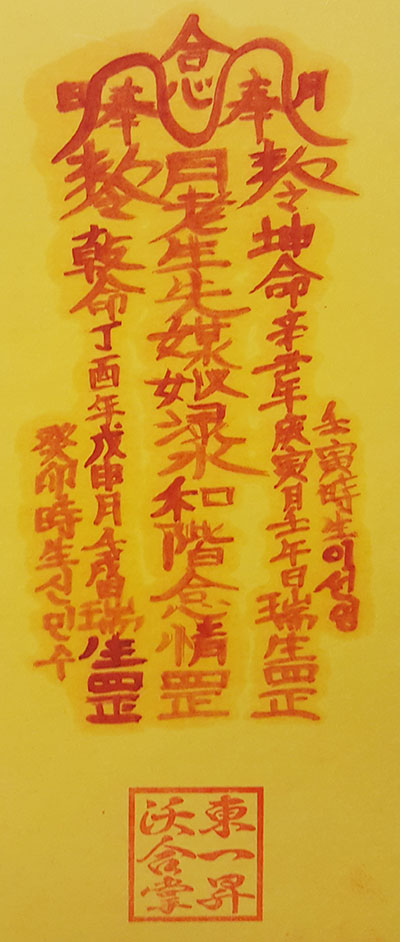 合心
月
日
奉
奉
敕令坤命辛丑年庚寅月壬午日瑞生罡
壬寅時生이선영
月老生先媒妁
和階念情罡
敕令乾命丁酉年戊申月壬戌日瑞生罡
癸卯時生신민수
東一昇
沃合堂